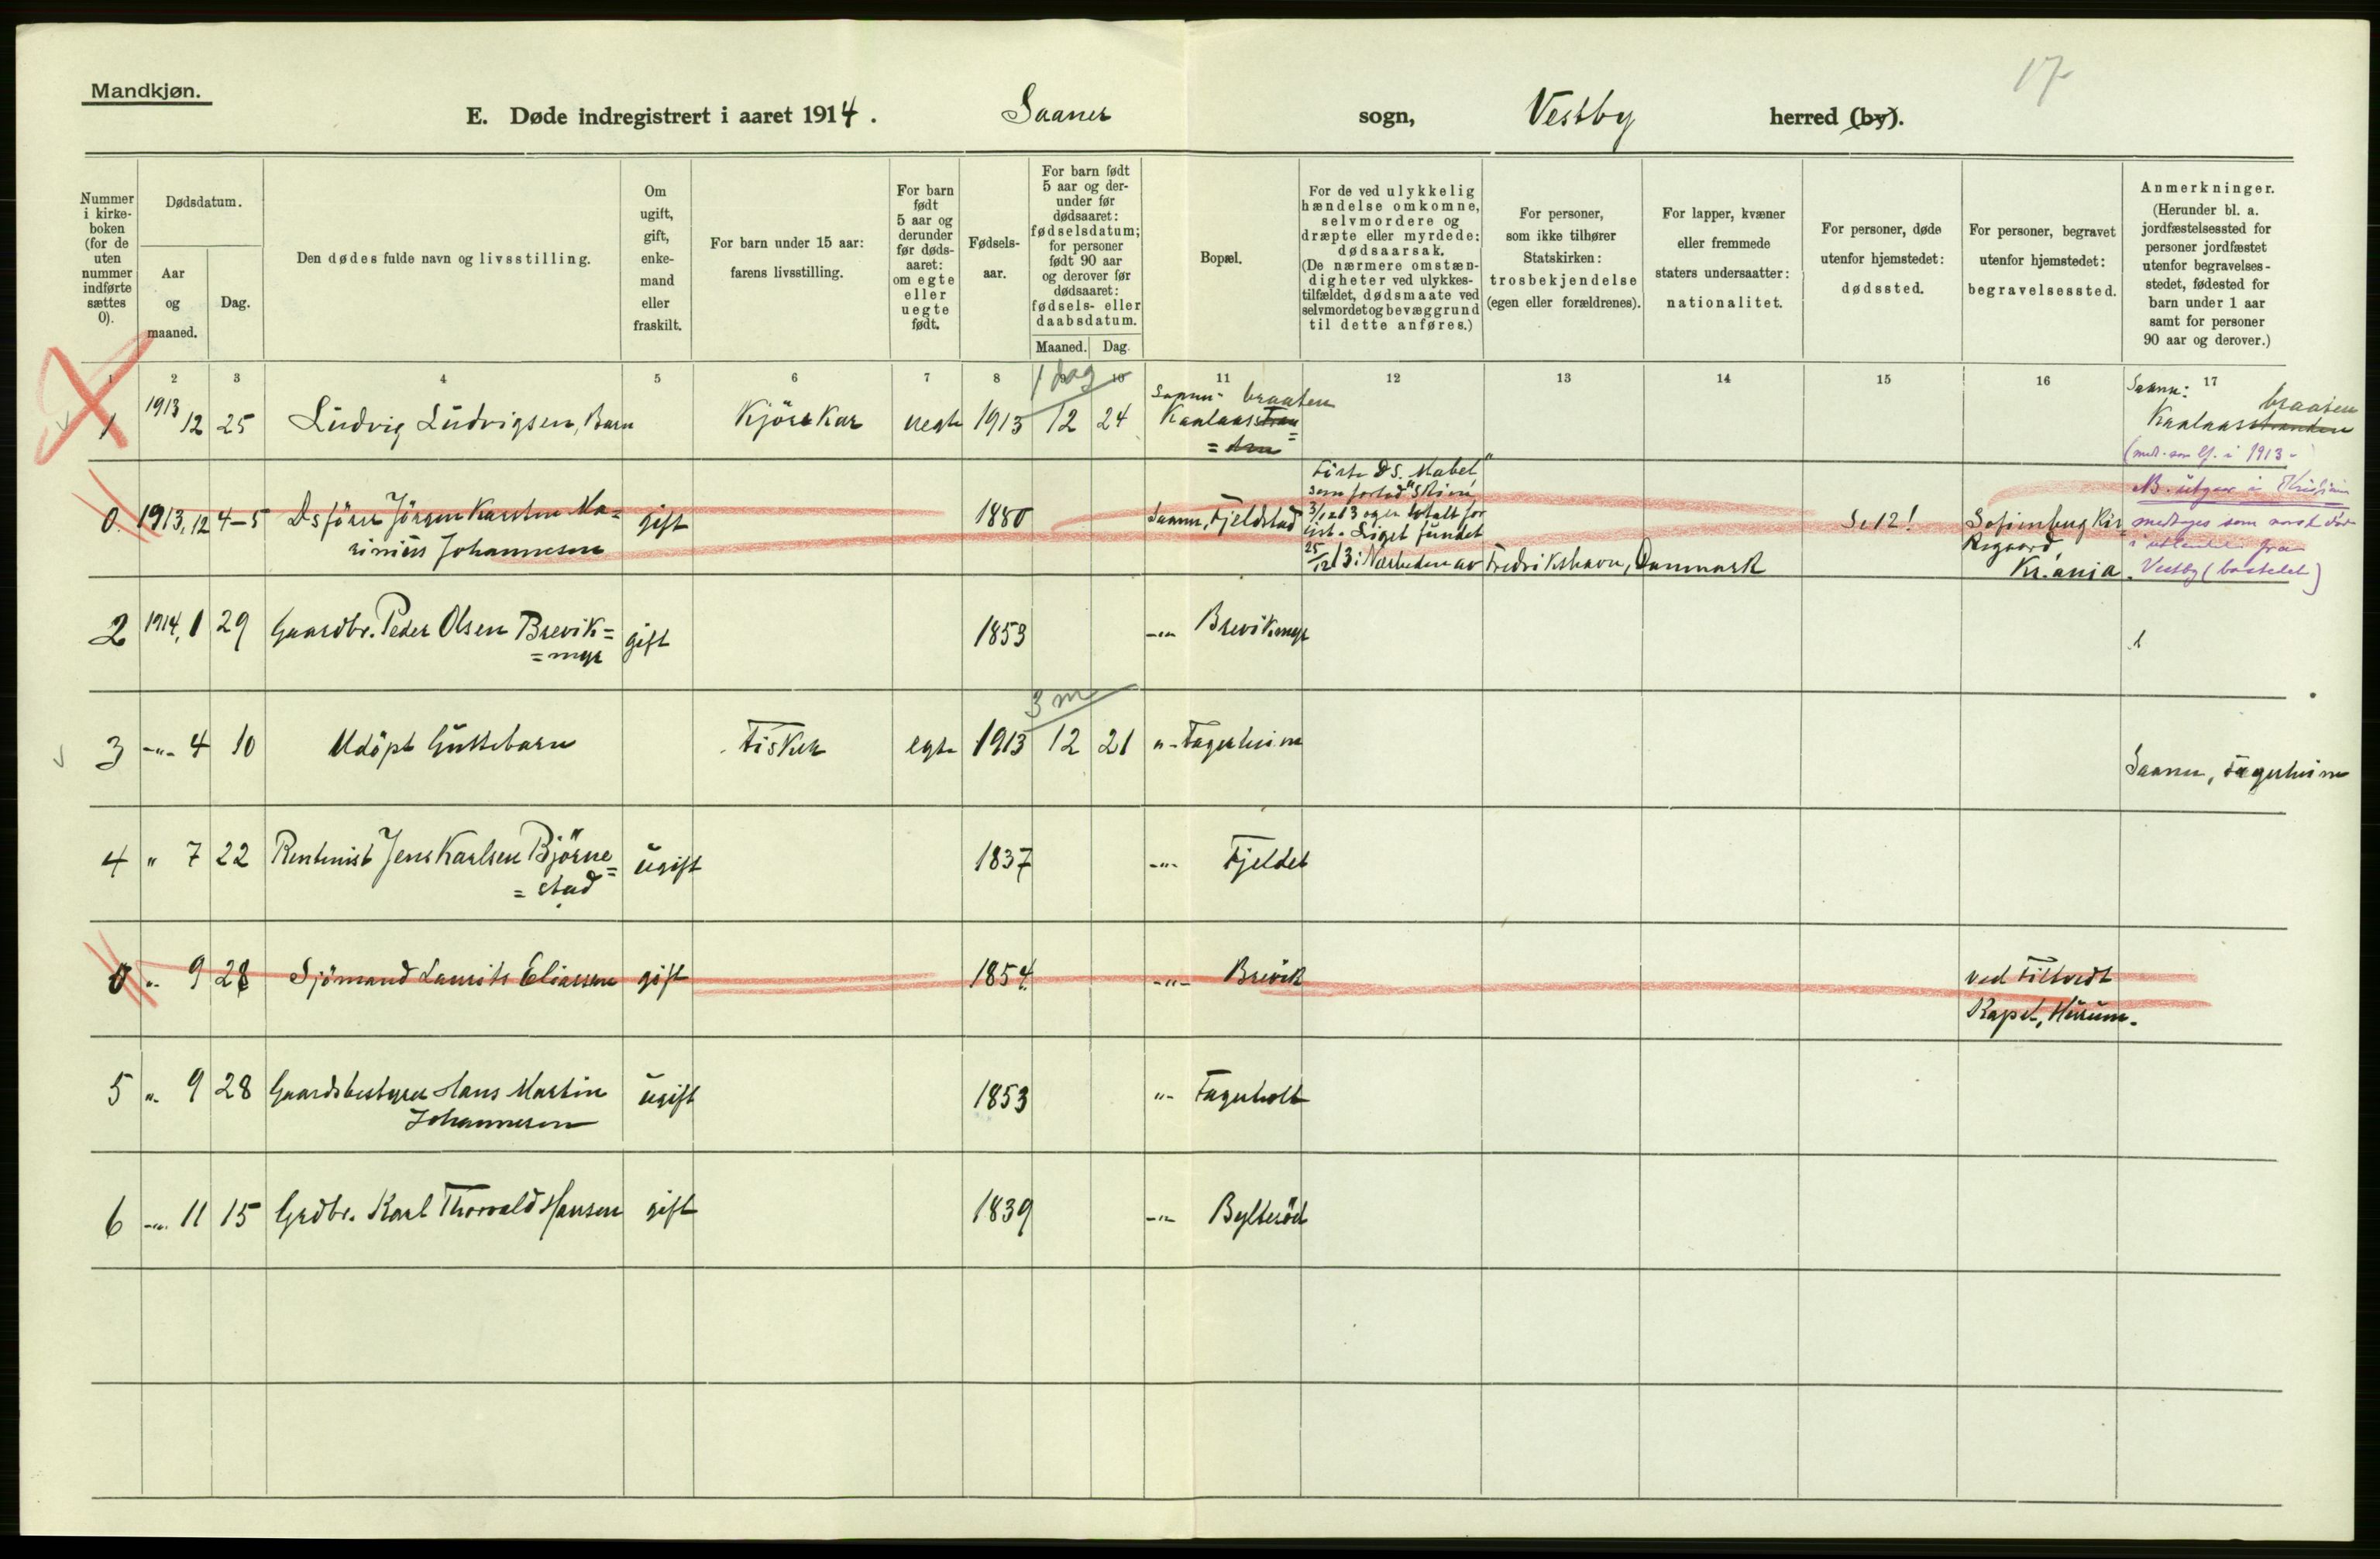 17
Mandkjøn.
E. Døde indregistrert i aaret 1914. Saaner sogn, Vestby herred (by).
Nummer i kirke- boken (for de uten nummer indførte sættes 0).
Dødsdatum.
Aar og maaned.
Dag.
Den dødes fulde navn og livsstilling.
Om ugift, gift, enke- mand eller fraskilt.
For barn under 15 aar: farens livsstilling.
For barn født 5 aar og derunder før døds- aaret: om egte eller uegte født.
Fødsels- aar.
For barn født 5 aar og der- under før dødsaaret: fødselsdatum; for personer født 90 aar og derover før dødsaaret: fødsels- eller daabsdatum.
Maaned. Dag.
Bopæl.
For de ved ulykkelig hændelse omkomne, selvmordere og dræpte eller myrdede: dødsaarsak. (De nærmere omstæn- digheter ved ulykkes- tilfældet, dødsmaate ved selvmordet og bevæggrund til dette anføres.)
For personer, som ikke tilhører Statskirken: trosbekjendelse (egen eller forældrenes).
For lapper, kvæner eller fremmede staters undersaatter: nationalitet.
For personer, døde utenfor hjemstedet: dødssted.
For personer, begravet utenfor hjemstedet: begravelsessted.
Anmerkninger. (Herunder bl. a. jordfæstelsessted for personer jordfæstet utenfor begravelses- stedet, fødested for barn under 1 aar samt for personer 90 aar og derover.)
1 2 3 4 5 6 7 8 9 10 11 12 13 14 15 16 17
1 dag
1 1913 12 25 Ludvig Ludvigsen, Barn Kjörekar uegte 1913 12 24 Saaner braaten
Kaalaas
Saaner: braaten
Kaalaasstranden
(med. som lf. i 1913
0. 1913, 12 4-5 Dsförer Jörgen Karsten Ma=
rinius Johannesen gift 1880 Saaner, Fjeldstad
Förte DS. "Mabel"
som forlod "Skien"
3/12 13 og er totalt for
list. Liget fundet
25/12 13 i Nærheden av Fredrikshavn, Danmark
Se 12!
Sofienberg Kir
kegaard,
Kr.ania.
NB. utgaar i
medtages som norsk död
i utlandet fra
Vestby (bostedet)
2 1914, 1 29 Gaardbr. Peder Olsen Brevik=
=myr gift 1853 -"- Brevikmyr 1
3 m
3 -"- 4 10 Udöpt Guttebarn Fisker egte 1913 12 21 "- Fagerheim
Saaner, Fagerheim
4 " 7 22 Rentenist Jens Karlsen Björne=
=stad ugift 1837 -"- Fjeldet
0 " 9 28 Sjömand Laurits Eliassen gift 1854 -"- Brevik
ved Filtvedt
Kapel, Hurum.
5 " 9 28 Gaardsbestyrer Hans Martin
Johannesen ugift 1853 "- Fagerholt
6 -"- 11 15 Grdbr. Karl Thorvald Hansen gift 1839 -"- Bylteröd